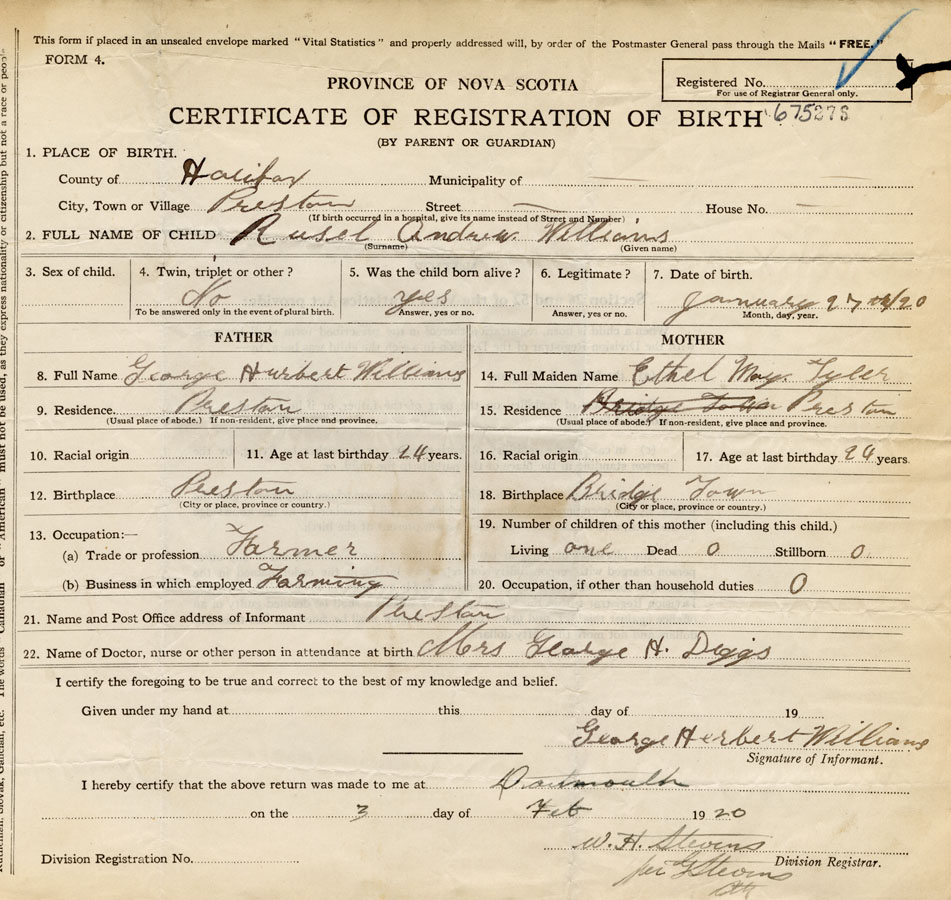 This form if placed in an unsealed envelope marked "Vital Statistics" and properly addressed will, by order of the Postmaster General pass through the Mails "FREE."
FORM 4.
PROVINCE OF NOVA SCOTIA
Registered No.
For use of Registrar General only.
CERTIFICATE OF REGISTRATION OF BIRTH
675278
(BY PARENT OR GUARDIAN)
1. PLACE OF BIRTH.
County of Halifax Municipality of
City, Town or Village Preston Street House No.
(If birth occurred in a hospital, give its name instead of Street and Number)
2. FULL NAME OF CHILD Rusel Andrew Williams
(Surname) (Given name)
3. Sex of child. 4. Twin, triplet or other? 5. Was the child born alive? 6. Legitimate? 7. Date of birth.
No yes January 27 20
To be answered only in the event of plural birth. Answer, yes or no. Answer, yes or no. Month, day, year.
FATHER MOTHER
8. Full Name George Hurbert Williams 14. Full Maiden Name Ethel May Tyler
9. Residence Preston 15. Residence Bridge Town Preston
(Usual place of abode.) If non-resident, give place and province. (Usual place of abode.) If non-resident, give place and province.
10. Racial origin 11. Age at last birthday 24 years. 16. Racial origin 17. Age at last birthday 24 years.
12. Birthplace Preston 18. Birthplace Bridge Town
(City or place, province or country.) (City or place, province or country.)
13. Occupation:— 19. Number of children of this mother (including this child.)
(a) Trade or profession Farmer Living one Dead 0 Stillborn 0
(b) Business in which employed Farming 20. Occupation, if other than household duties 0
21. Name and Post Office address of Informant Preston
22. Name of Doctor, nurse or other person in attendance at birth Mrs George H. Diggs
I certify the foregoing to be true and correct to the best of my knowledge and belief.
Given under my hand at this day of 19
George Herbert Williams
Signature of Informant.
I hereby certify that the above return was made to me at Dartmouth
on the 3 day of Feb 1920
W. H. Stevens
Division Registration No. Division Registrar.
per G Stevens